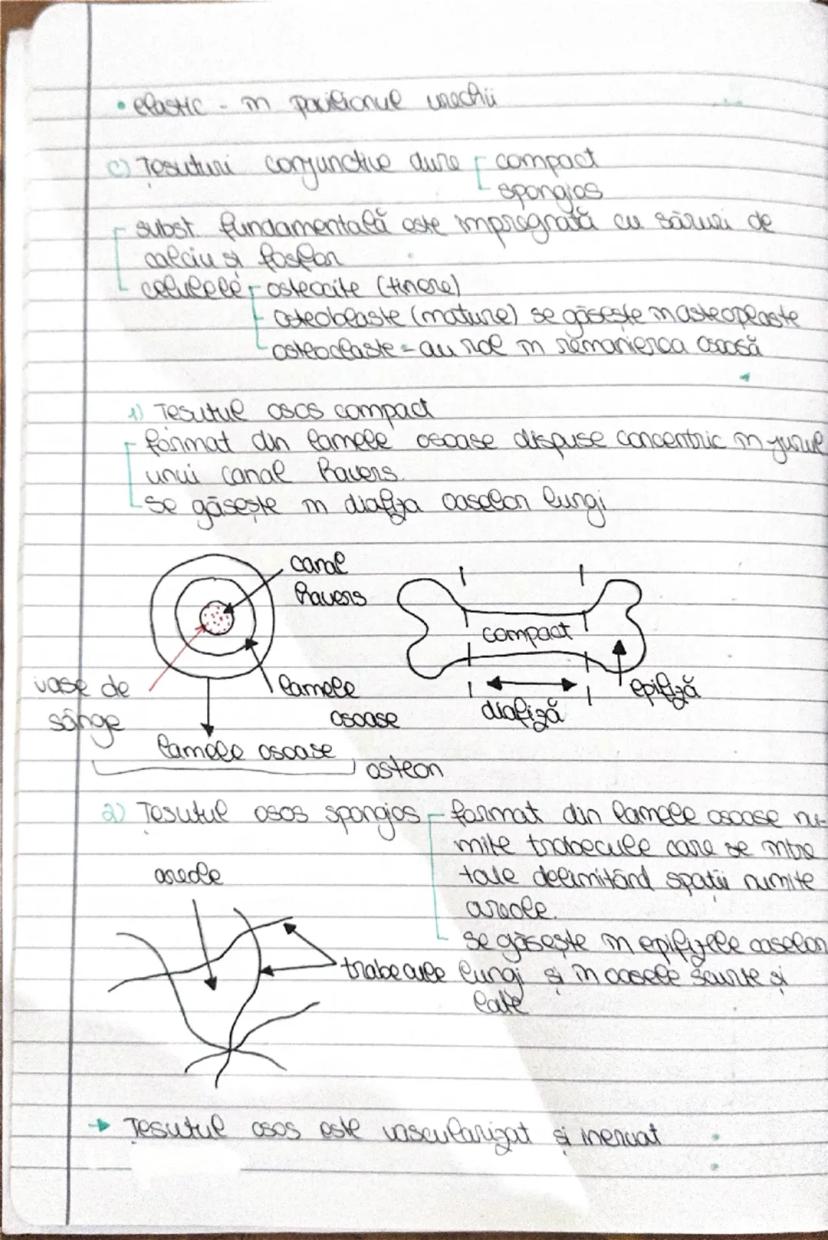 • elastic - în pavilionul urechii
c) Țesuturi conjunctive dure compact
spongios
subst. fundamentală este impregnată cu săruri de
calciu și fosfor
celulele osteocite (tinere)
osteoblaste (mature) se găsește în osteoplaste
osteoclaste - au rol în remanierea osoasă
1) Țesutul osos compact
format din lamele osoase dispuse concentric în jurul
unui canal Havers.
se găsește în diafiza oaselor lungi
canal
Havers
compact
vase de
sânge
lamele
osoase
diafiză
epifiză
lamele osoase
osteon
2) Țesutul osos spongios format din lamele osoase nu-
mite trabecule care se între
taie delimitând spații numite
areole.
areole
se găsește în epifizele oaselor
trabecule lungi și în oasele scurte și
late
→ Țesutul osos este vascularizat și inervat